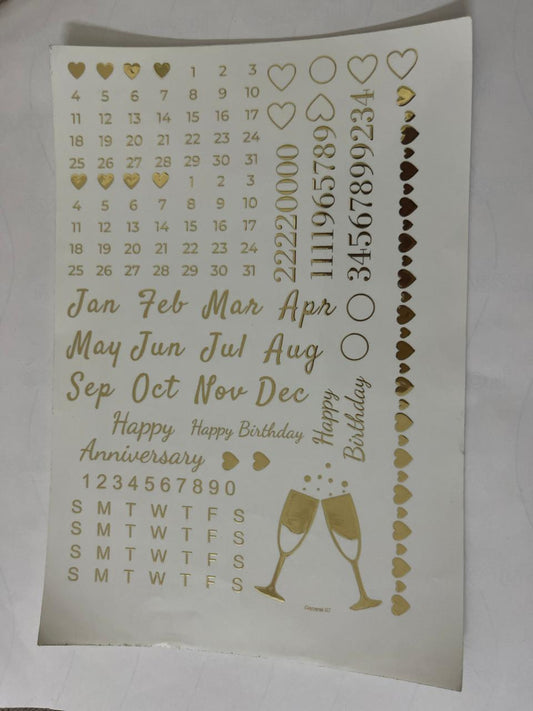 1 2 3
4 5 6 7 8 9 10
11 12 13 14 15 16 17
18 19 20 21 22 23 24
25 26 27 28 29 30 31
1 2 3
4 5 6 7 8 9 10
11 12 13 14 15 16 17
18 19 20 21 22 23 24
25 26 27 28 29 30 31
22220000
1111965789
34567899234
Jan Feb Mar Apr
May Jun Jul Aug
Sep Oct Nov Dec
Happy Anniversary
Happy Birthday
Happy Birthday
1234567890
S M T W T F S
S M T W T F S
S M T W T F S
S M T W T F S